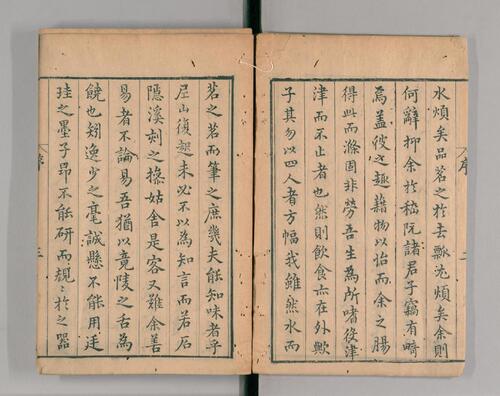 序 二
水煩矣品茗之於去瓢尤煩矣余則
何辭抑余於嵇阮諸君子竊有畸
焉盖彼之趣藉物以怡而余之腸
得此而滌固非勞吾生為所嗜役津
津而不止者也然則飲食亦在外歟
子其勿以四人者方幅我雖然水而
茗之茗而筆之庶幾夫能知味者乎
尼山復起未必不以為知言而若石
隱溪刻之操姑舍是客又難余善
易者不論易吾猶以竟陵之舌為
饒也矧逸少之毫誠懸不能用廷
珪之墨子昂不能研而規〻於之器
序 三